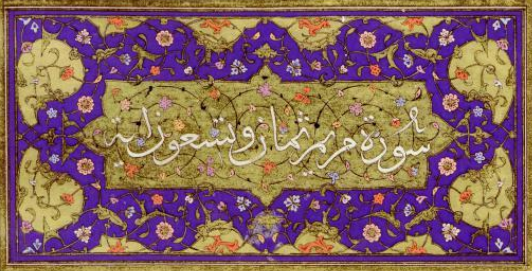 سُورَة مريم ثمان وتسعون اية